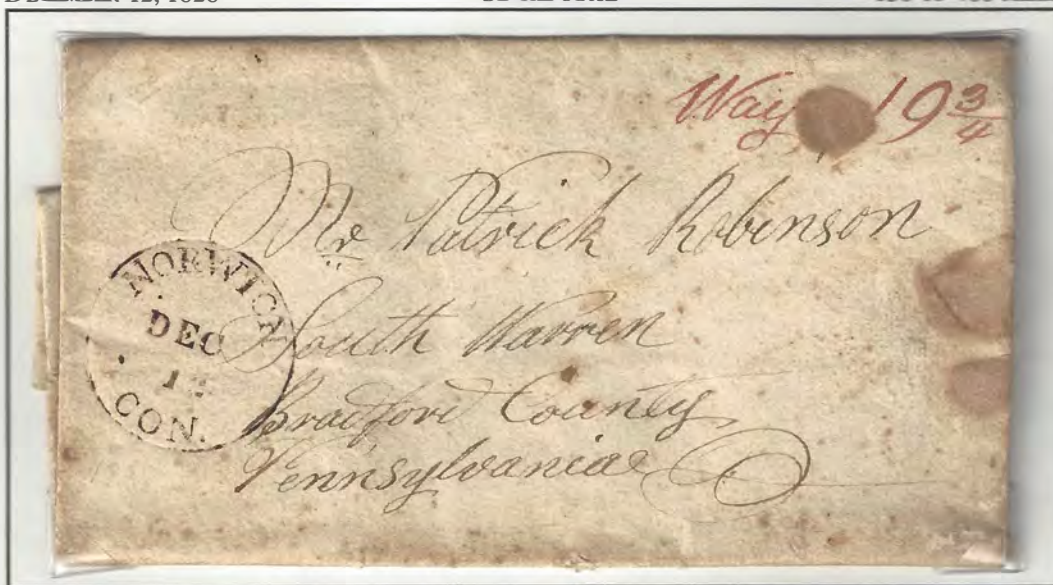 Way 19 3/4
Mr Patrick Robinson
South Warren
Bradford County
Pennsylvania
NORWICH
DEC
CON.